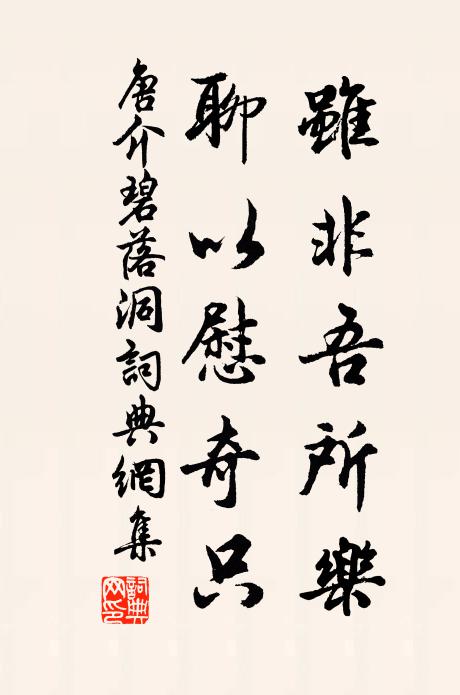 雖非吾所樂
聊以慰奇只
唐介碧落洞詞典網集
詞典网印